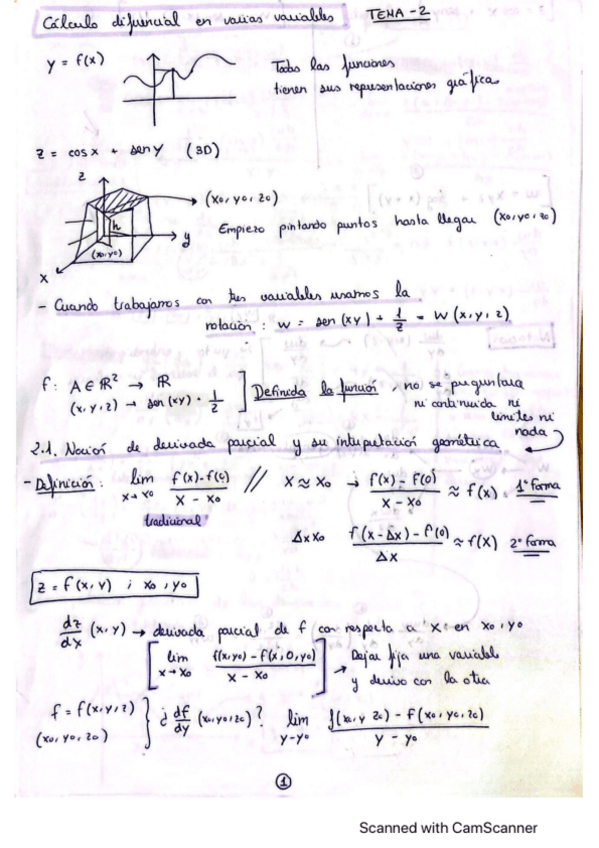 Cálculo diferencial en varias variables TEMA-2
y = f(x)
Todas las funciones
tienen sus representaciones gráfica
z = cos x + sen y (3D)
z
(x0, y0, z0)
h
y
Empiezo pintando puntos hasta llegar (x0, y0, z0)
(x0, y0)
x
- Cuando trabajamos con tres variables usamos la
notación : w = sen (xy) + 1/2 = w (x, y, z)
f: A ∈ ℝ² → ℝ
(x, y, z) → sen (xy) · 1/2
] Definida la función
no se preguntara
ni continuida ni
limites ni
nada
2.1. Noción de derivada parcial y su interpretación geométrica
- Definición : lim x→x0 f(x)-f(0) / x - x0 // x ≈ x0 → f(x) - f(0) / x - x0 ≈ f(x) . 1ª forma
tradicional
Δx x0 f(x-Δx) - f(0) / Δx ≈ f(x) 2ª forma
z = f(x, y) ; x0, y0
dz/dx (x, y) → derivada parcial de f con respecto a "x" en x0, y0
[ lim x→x0 f(x, y0) - f(x, 0, y0) / x - x0 ] → Dejar fija una variable
y derivo con la otra
f = f(x, y, z)
(x0, y0, z0)
} ¿ df/dy (x0, y0, z0) ? lim y-y0 f(x0, y z0) - f(x0, y0, z0) / y - y0
1
Scanned with CamScanner